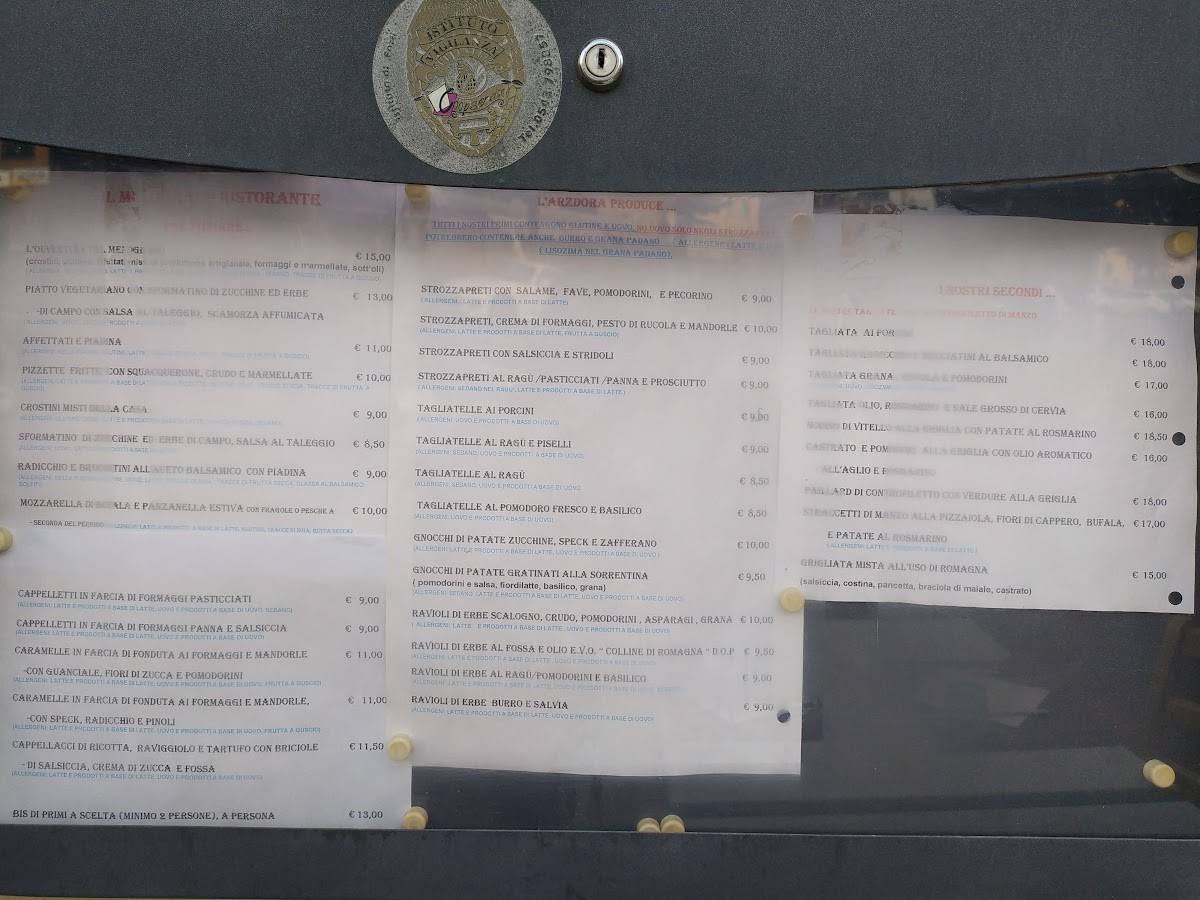 ISTITUTO
VIGILANZA
RISTORANTE
€ 15,00
artigianale, formaggi e marmellate, sott'oli)
PIATTO VEGETARIANO CON SFORMATINO DI ZUCCHINE ED ERBE € 13,00
-DI CAMPO CON SALSA AL TALEGGIO, SCAMORZA AFFUMICATA
AFFETTATI E PIADINA € 11,00
PIZZETTE FRITTE CON SQUACQUERONE, CRUDO E MARMELLATE € 10,00
CROSTINI MISTI DELLA CASA € 9,00
SFORMATINO DI ZUCCHINE ED ERBE DI CAMPO, SALSA AL TALEGGIO € 8,50
RADICCHIO E BRUCIATINI ALL'ACETO BALSAMICO CON PIADINA € 9,00
MOZZARELLA DI BUFALA E PANZANELLA ESTIVA CON FRAGOLE O PESCHE A € 10,00
- SECONDA DEL PERIODO
CAPPELLETTI IN FARCIA DI FORMAGGI PASTICCIATI € 9,00
(ALLERGENI: LATTE E PRODOTTI A BASE DI LATTE, UOVO E PRODOTTI A BASE DI UOVO, SEDANO)
CAPPELLETTI IN FARCIA DI FORMAGGI PANNA E SALSICCIA € 9,00
(ALLERGENI: LATTE E PRODOTTI A BASE DI LATTE, UOVO E PRODOTTI A BASE DI UOVO)
CARAMELLE IN FARCIA DI FONDUTA AI FORMAGGI E MANDORLE € 11,00
-CON GUANCIALE, FIORI DI ZUCCA E POMODORINI
(ALLERGENI: LATTE E PRODOTTI A BASE DI LATTE, UOVO E PRODOTTI A BASE DI UOVO, FRUTTA A GUSCIO)
CARAMELLE IN FARCIA DI FONDUTA AI FORMAGGI E MANDORLE, € 11,00
-CON SPECK, RADICCHIO E PINOLI
(ALLERGENI: LATTE E PRODOTTI A BASE DI LATTE, UOVO E PRODOTTI A BASE DI UOVO, FRUTTA A GUSCIO)
CAPPELLACCI DI RICOTTA, RAVIGGIOLO E TARTUFO CON BRICIOLE € 11,50
- DI SALSICCIA, CREMA DI ZUCCA E FOSSA
(ALLERGENI: LATTE E PRODOTTI A BASE DI LATTE, UOVO E PRODOTTI A BASE DI UOVO)
BIS DI PRIMI A SCELTA (MINIMO 2 PERSONE), A PERSONA € 13,00
L'ARZDORA PRODUCE ...
TUTTI I NOSTRI PRIMI CONTENGONO GLUTINE E UOVO, NO UOVO SOLO NEGLI STROZZAPRETI
POTREBBERO CONTENERE ANCHE BURRO E GRANA PADANO (ALLERGENI: LATTE E
( LISOZIMA NEL GRANA PADANO).
STROZZAPRETI CON SALAME, FAVE, POMODORINI, E PECORINO € 9,00
(ALLERGENI: LATTE E PRODOTTI A BASE DI LATTE)
STROZZAPRETI, CREMA DI FORMAGGI, PESTO DI RUCOLA E MANDORLE € 10,00
(ALLERGENI: LATTE E PRODOTTI A BASE DI LATTE, FRUTTA A GUSCIO)
STROZZAPRETI CON SALSICCIA E STRIDOLI € 9,00
STROZZAPRETI AL RAGÙ /PASTICCIATI /PANNA E PROSCIUTTO € 9,00
(ALLERGENI: SEDANO NEL RAGÙ, LATTE E PRODOTTI A BASE DI LATTE )
TAGLIATELLE AI PORCINI € 9,00
(ALLERGENI: UOVO E PRODOTTI A BASE DI UOVO)
TAGLIATELLE AL RAGÙ E PISELLI € 9,00
(ALLERGENI: SEDANO, UOVO E PRODOTTI A BASE DI UOVO)
TAGLIATELLE AL RAGÙ € 8,50
(ALLERGENI: SEDANO, UOVO E PRODOTTI A BASE DI UOVO
TAGLIATELLE AL POMODORO FRESCO E BASILICO € 8,50
(ALLERGENI: UOVO E PRODOTTI A BASE DI UOVO)
GNOCCHI DI PATATE ZUCCHINE, SPECK E ZAFFERANO € 10,00
(ALLERGENI: LATTE E PRODOTTI A BASE DI LATTE, UOVO E PRODOTTI A BASE DI UOVO )
GNOCCHI DI PATATE GRATINATI ALLA SORRENTINA € 9,50
( pomodorini e salsa, fiordilatte, basilico, grana)
(ALLERGENI: SEDANO, LATTE E PRODOTTI A BASE DI LATTE, UOVO E PRODOTTI A BASE DI UOVO)
RAVIOLI DI ERBE SCALOGNO, CRUDO, POMODORINI , ASPARAGI , GRANA € 10,00
( ALLERGENI: LATTE E PRODOTTI A BASE DI LATTE, UOVO E PRODOTTI A BASE DI UOVO)
RAVIOLI DI ERBE AL FOSSA E OLIO E.V.O. " COLLINE DI ROMAGNA " D.O.P € 9,50
(ALLERGENI: LATTE E PRODOTTI A BASE DI LATTE, UOVO E PRODOTTI A BASE DI UOVO)
RAVIOLI DI ERBE AL RAGÙ/POMODORINI E BASILICO € 9,00
RAVIOLI DI ERBE BURRO E SALVIA € 9,00
(ALLERGENI: LATTE E PRODOTTI A BASE DI LATTE, UOVO E PRODOTTI A BASE DI UOVO)
I NOSTRI SECONDI ...
DI MANZO
TAGLIATA AI PORCINI € 18,00
AL BALSAMICO € 18,00
TAGLIATA GRANA, RUCOLA E POMODORINI € 17,00
TAGLIATA OLIO, ROSMARINO E SALE GROSSO DI CERVIA € 16,00
DI VITELLO ALLA GRIGLIA CON PATATE AL ROSMARINO € 18,50
CASTRATO E ALLA GRIGLIA CON OLIO AROMATICO € 16,00
ALL'AGLIO E ROSMARINO
PAILLARD DI CONTROFILETTO CON VERDURE ALLA GRIGLIA € 18,00
STRACCETTI DI MANZO ALLA PIZZAIOLA, FIORI DI CAPPERO, BUFALA, € 17,00
E PATATE AL ROSMARINO
(ALLERGENI: LATTE E PRODOTTI A BASE DI LATTE )
GRIGLIATA MISTA ALL'USO DI ROMAGNA € 15,00
(salsiccia, costina, pancetta, braciola di maiale, castrato)